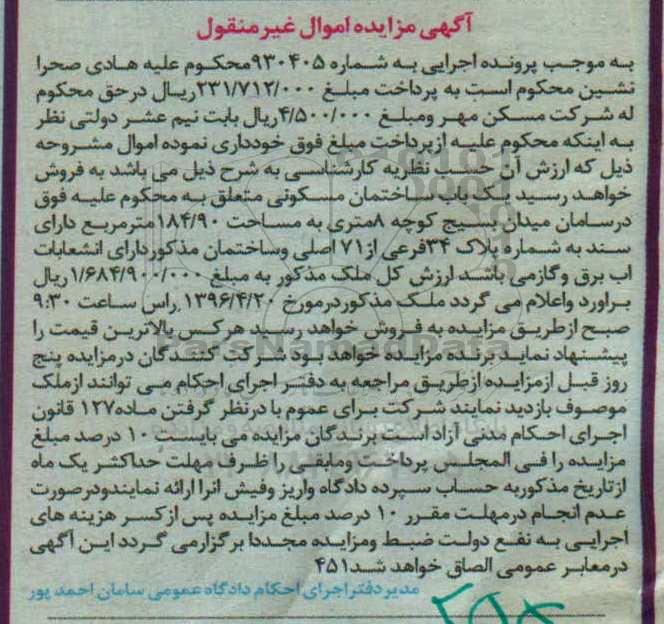 آگهی مزایده اموال غیر منقول
به موجب پرونده اجرایی به شماره ۹۳۰۴۰۵محکوم علیه هادی صحرا
نشین محکوم است به پرداخت مبلغ ۲۳۱/۷۱۲/۰۰۰ریال درحق محکوم
له شرکت مسکن مهر ومبلغ ۴/۵۰۰/۰۰۰ریال بابت نیم عشر دولتی نظر
به اینکه محکوم علیه ازپرداخت مبلغ فوق خودداری نموده اموال مشروحه
ذیل که ارزش آن حسب نظریه کارشناسی به شرح ذیل می باشد به فروش
خواهد رسید یک باب ساختمان مسکونی متعلق به محکوم علیه فوق
درسامان میدان بسیج کوچه ۸متری به مساحت ۱۸۴/۹۰مترمربع دارای
سند به شماره پلاک ۳۴فرعی از۷۱ اصلی وساختمان مذکوردارای انشعابات
اب برق وگازمی باشد ارزش کل ملک مذکور به مبلغ ۱/۶۸۴/۹۰۰/۰۰۰ریال
براورد واعلام می گردد ملک مذکوردرمورخ ۱۳۹۶/۴/۲۰ راس ساعت ۹:۳۰
صبح ازطریق مزایده به فروش خواهد رسید هرکس بالاترین قیمت را
پیشنهاد نماید برنده مزایده خواهد بود شرکت کنندگان درمزایده پنج
روز قبل ازمزایده ازطریق مراجعه به دفتر اجرای احکام می توانند ازملک
موصوف بازدید نمایند شرکت برای عموم با درنظر گرفتن ماده۱۲۷ قانون
اجرای احکام مدنی آزاد است برندگان مزایده می بایست ۱۰ درصد مبلغ
مزایده را فی المجلس پرداخت ومابقی را ظرف مهلت حداکثر یک ماه
ازتاریخ مذکوربه حساب سپرده دادگاه واریز وفیش انرا ارائه نمایندودرصورت
عدم انجام درمهلت مقرر ۱۰ درصد مبلغ مزایده پس ازکسر هزینه های
اجرایی به نفع دولت ضبط ومزایده مجددا برگزارمی گردد این آگهی
درمعابر عمومی الصاق خواهد شد۴۵۱
مدیر دفتراجرای احکام دادگاه عمومی سامان احمد پور
ParsNamadData